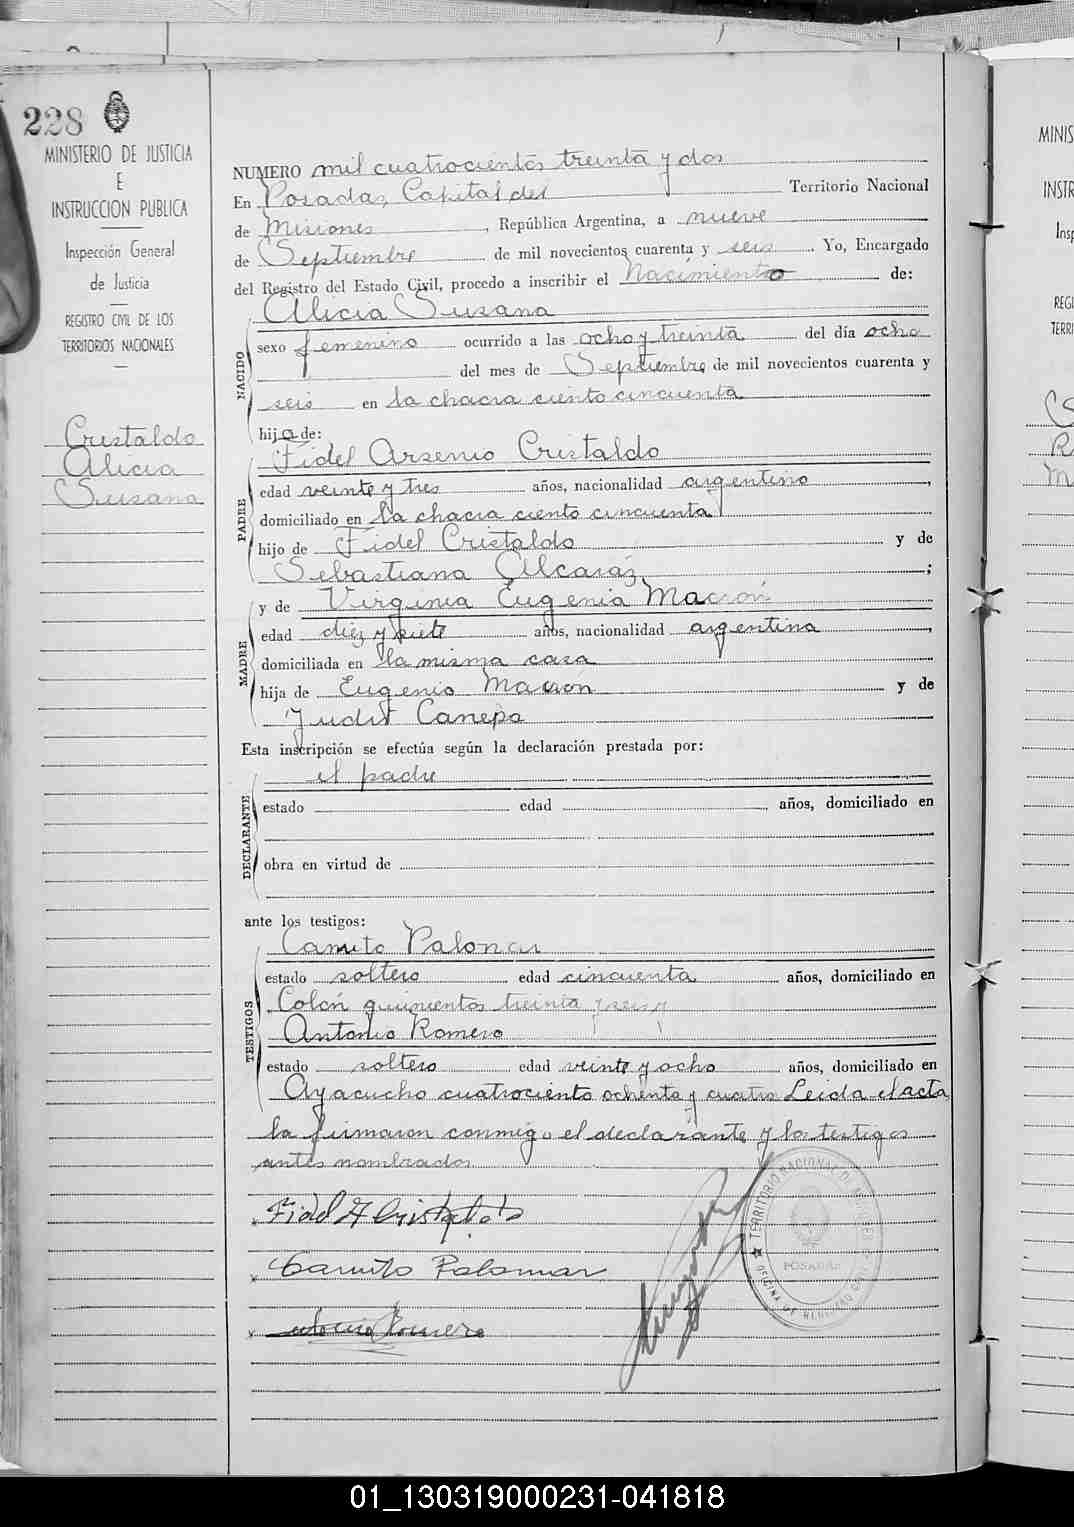 228
MINISTERIO DE JUSTICIA
E
INSTRUCCION PUBLICA
Inspección General
de Justicia
REGISTRO CIVIL DE LOS
TERRITORIOS NACIONALES
Cristaldo
Alicia
Susana
NUMERO mil cuatrocientos treinta y dos
En Posadas, Capital del Territorio Nacional
de Misiones, República Argentina, a nueve
de Septiembre de mil novecientos cuarenta y seis. Yo, Encargado
del Registro del Estado Civil, procedo a inscribir el Nacimiento de:
NACIDO
Alicia Susana
sexo femenino ocurrido a las ocho y treinta del día ocho
del mes de Septiembre de mil novecientos cuarenta y
seis en la chacra ciento cincuenta
hija de:
PADRE
Fidel Arsenio Cristaldo
edad veinte y tres años, nacionalidad argentino,
domiciliado en la chacra ciento cincuenta
hijo de Fidel Cristaldo y de
Sebastiana Alcaráz;
y de Virginia Eugenia
MADRE
edad diez y siete años, nacionalidad argentina,
domiciliada en la misma casa
hija de Eugenio y de
Judit Canepa
Esta inscripción se efectúa según la declaración prestada por:
DECLARANTE
el padre
estado edad años, domiciliado en
obra en virtud de
ante los testigos:
TESTIGOS
Camilo Palomar
estado soltero edad cincuenta años, domiciliado en
Colón quinientos treinta y seis y
Antonio Romero
estado soltero edad veinte y ocho años, domiciliado en
Ayacucho cuatrociento ochenta y cuatro Leida el acta
la firmaron conmigo el declarante y los testigos
antes nombrados
Fidel A Cristaldo
Camilo Palomar
Antonio Romero
TERRITORIO NACIONAL DE MISIONES
POSADAS
OFICINA DE REGISTRO CIVIL
MINIS
INSTR
Insp
REGI
TERRI
01_130319000231-041818